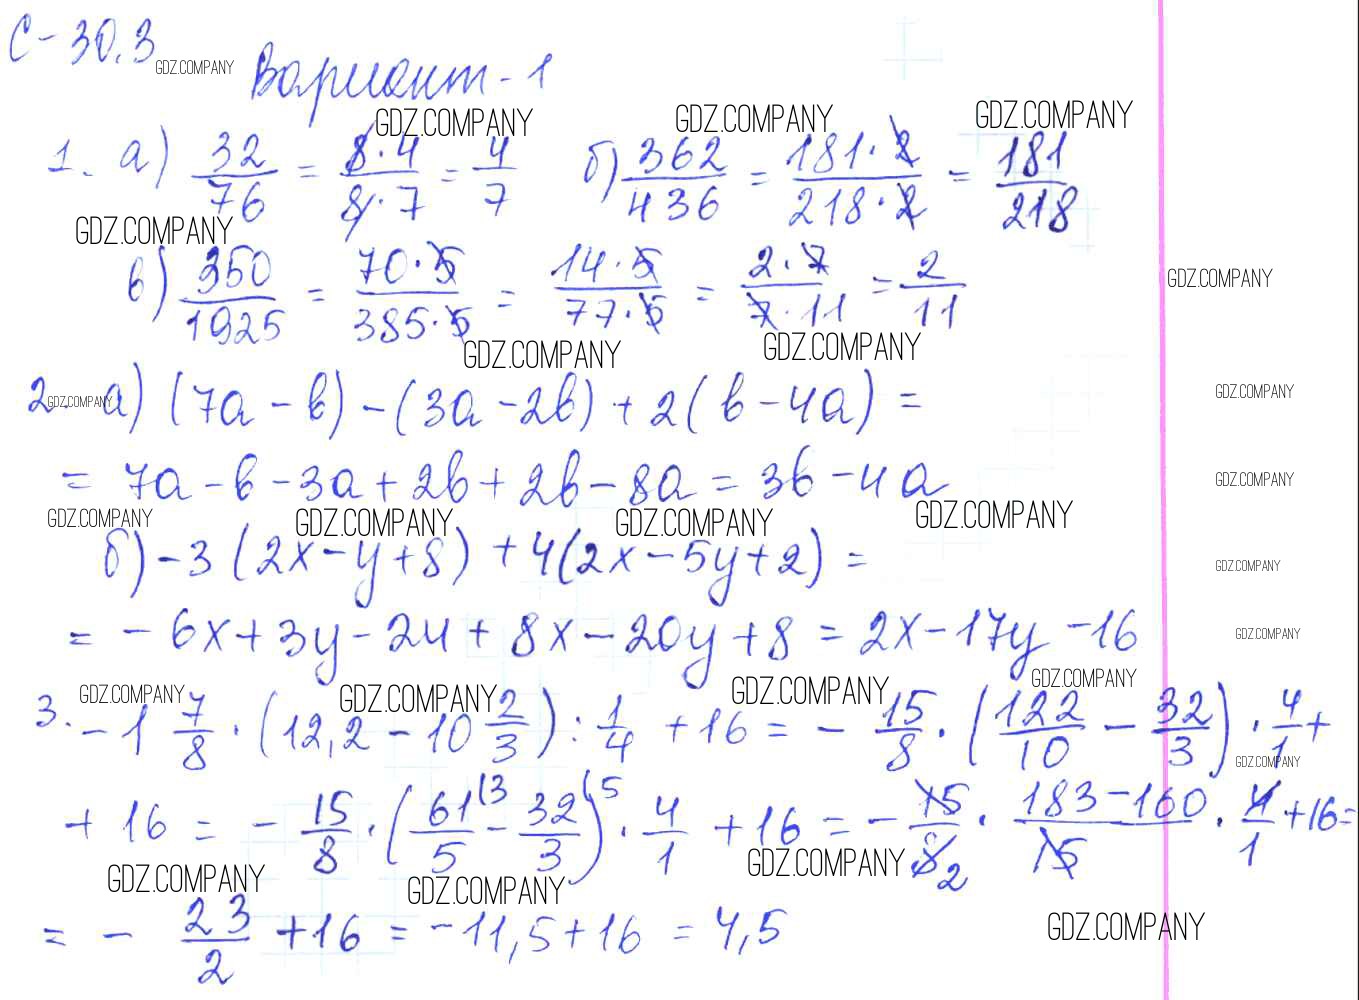 С-30.3
GDZ.COMPANY
Вариант-1
GDZ.COMPANY GDZ.COMPANY GDZ.COMPANY
1. а) 32/76 = 8·4/8·7 = 4/7 б) 362/436 = 181·2/218·2 = 181/218
GDZ.COMPANY
в) 350/1925 = 70·5/385·5 = 14·5/77·5 = 2·7/7·11 = 2/11
GDZ.COMPANY
GDZ.COMPANY GDZ.COMPANY
2. а) (7a - b) - (3a - 2b) + 2(b - 4a) =
GDZ.COMPANY GDZ.COMPANY
= 7a - b - 3a + 2b + 2b - 8a = 3b - 4a
GDZ.COMPANY
GDZ.COMPANY GDZ.COMPANY GDZ.COMPANY GDZ.COMPANY
б) -3(2x - y + 8) + 4(2x - 5y + 2) =
GDZ.COMPANY
= -6x + 3y - 24 + 8x - 20y + 8 = 2x - 17y - 16
GDZ.COMPANY
GDZ.COMPANY GDZ.COMPANY GDZ.COMPANY GDZ.COMPANY
3. -1 7/8 · (12,2 - 10 2/3) : 1/4 + 16 = - 15/8 · (122/10 - 32/3) · 4/1 +
GDZ.COMPANY
+ 16 = - 15/8 · (61/5 (3 - 32/3 (5) · 4/1 + 16 = - 15/8 2 · 183-160/15 · 4/1 + 16 =
GDZ.COMPANY GDZ.COMPANY GDZ.COMPANY
= - 23/2 + 16 = -11,5 + 16 = 4,5
GDZ.COMPANY